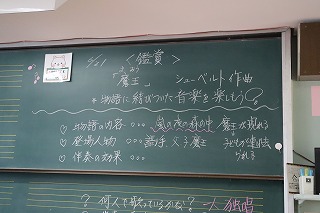 5/21 <鑑賞>
まおう
「魔王」 シューベルト作曲
*物語に結びついた音楽を楽しもう
♡物語の内容 … 嵐の夜の森の中 魔王が現れる
♡登場人物 … 語手 父 子 魔王 子どもが連れ去られる
♡伴奏の効果 …
? 何人で歌っているかな? → 独唱